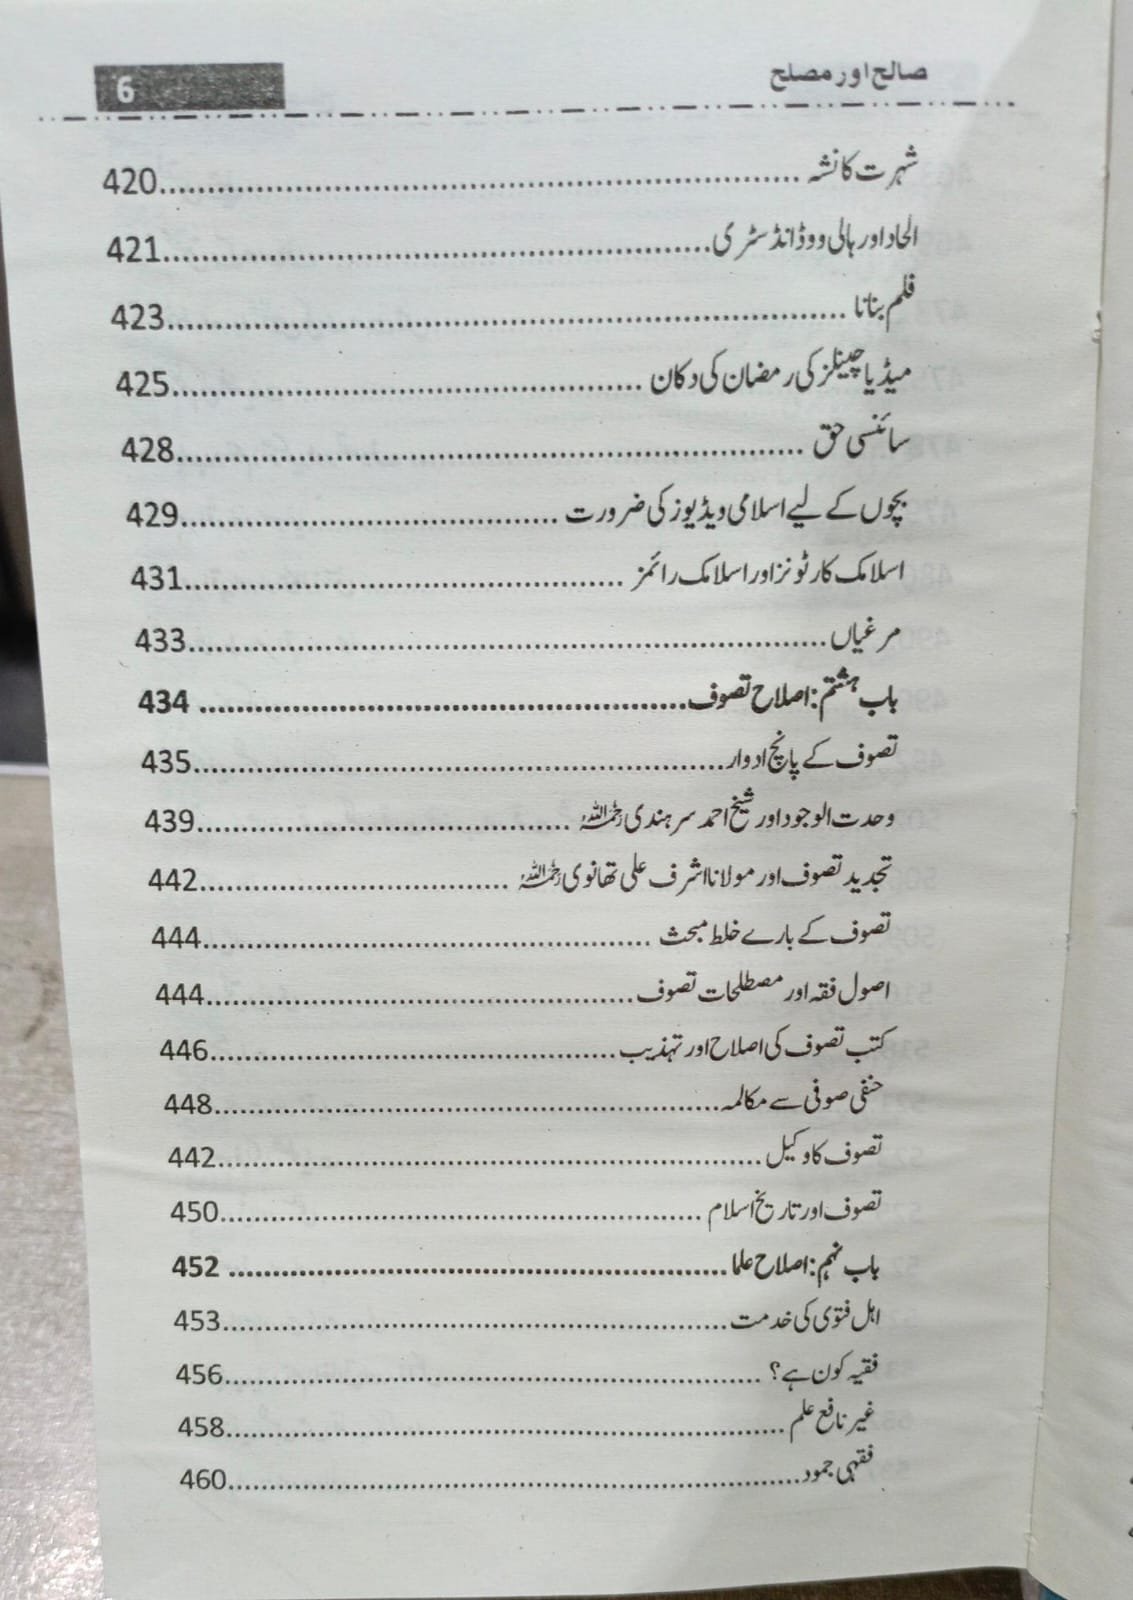 صالح اور مصلح 6
شہرت کا نشہ ........ 420
الحاد اور ہالی ووڈ انڈسٹری ........ 421
فلم بنانا ........ 423
میڈیا چینلز کی رمضان کی دکان ........ 425
سائنسی حق ........ 428
بچوں کے لیے اسلامی ویڈیوز کی ضرورت ........ 429
اسلامک کارٹونز اور اسلامک رائمز ........ 431
مرغیاں ........ 433
باب ہشتم: اصلاح تصوف ........ 434
تصوف کے پانچ ادوار ........ 435
وحدت الوجود اور شیخ احمد سرہندی رحمہ اللہ ........ 439
تجدید تصوف اور مولانا اشرف علی تھانوی رحمہ اللہ ........ 442
تصوف کے بارے خلط مبحث ........ 444
اصول فقہ اور مصطلحات تصوف ........ 444
کتب تصوف کی اصلاح اور تہذیب ........ 446
حنفی صوفی سے مکالمہ ........ 448
تصوف کا وکیل ........ 442
تصوف اور تاریخ اسلام ........ 450
باب نہم: اصلاح علما ........ 452
اہل فتوی کی خدمت ........ 453
فقیہ کون ہے؟ ........ 456
غیر نافع علم ........ 458
فقہی جمود ........ 460